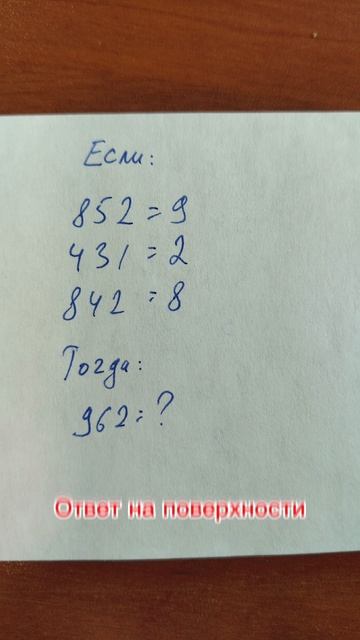 Если:
852 = 9
431 = 2
842 = 8
Тогда:
962 = ?
Ответ на поверхности